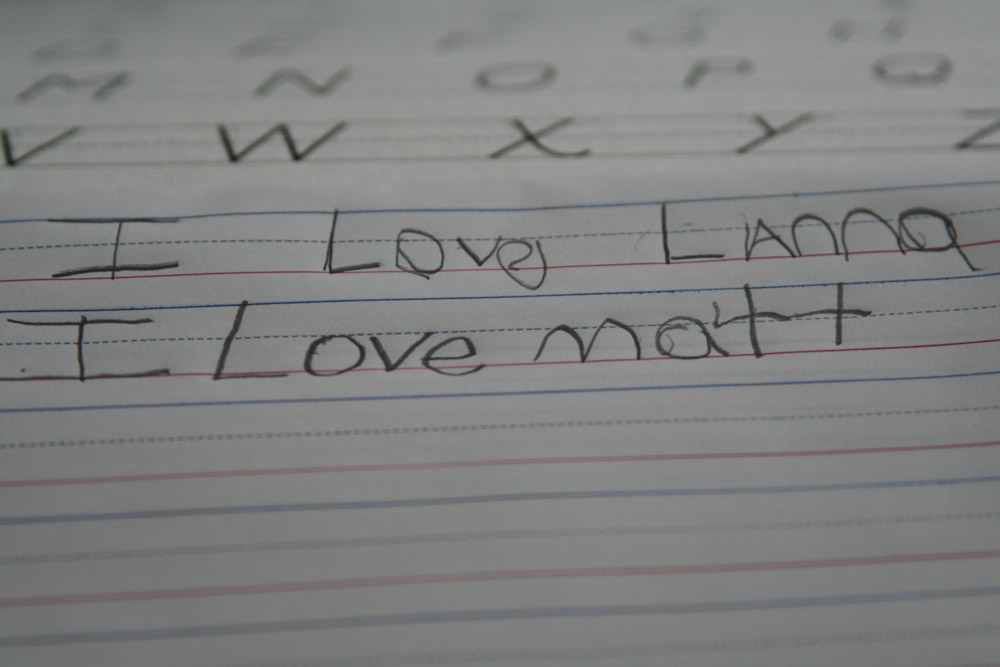 M N O P Q
V W X Y Z
I Love Lianna
I Love matt